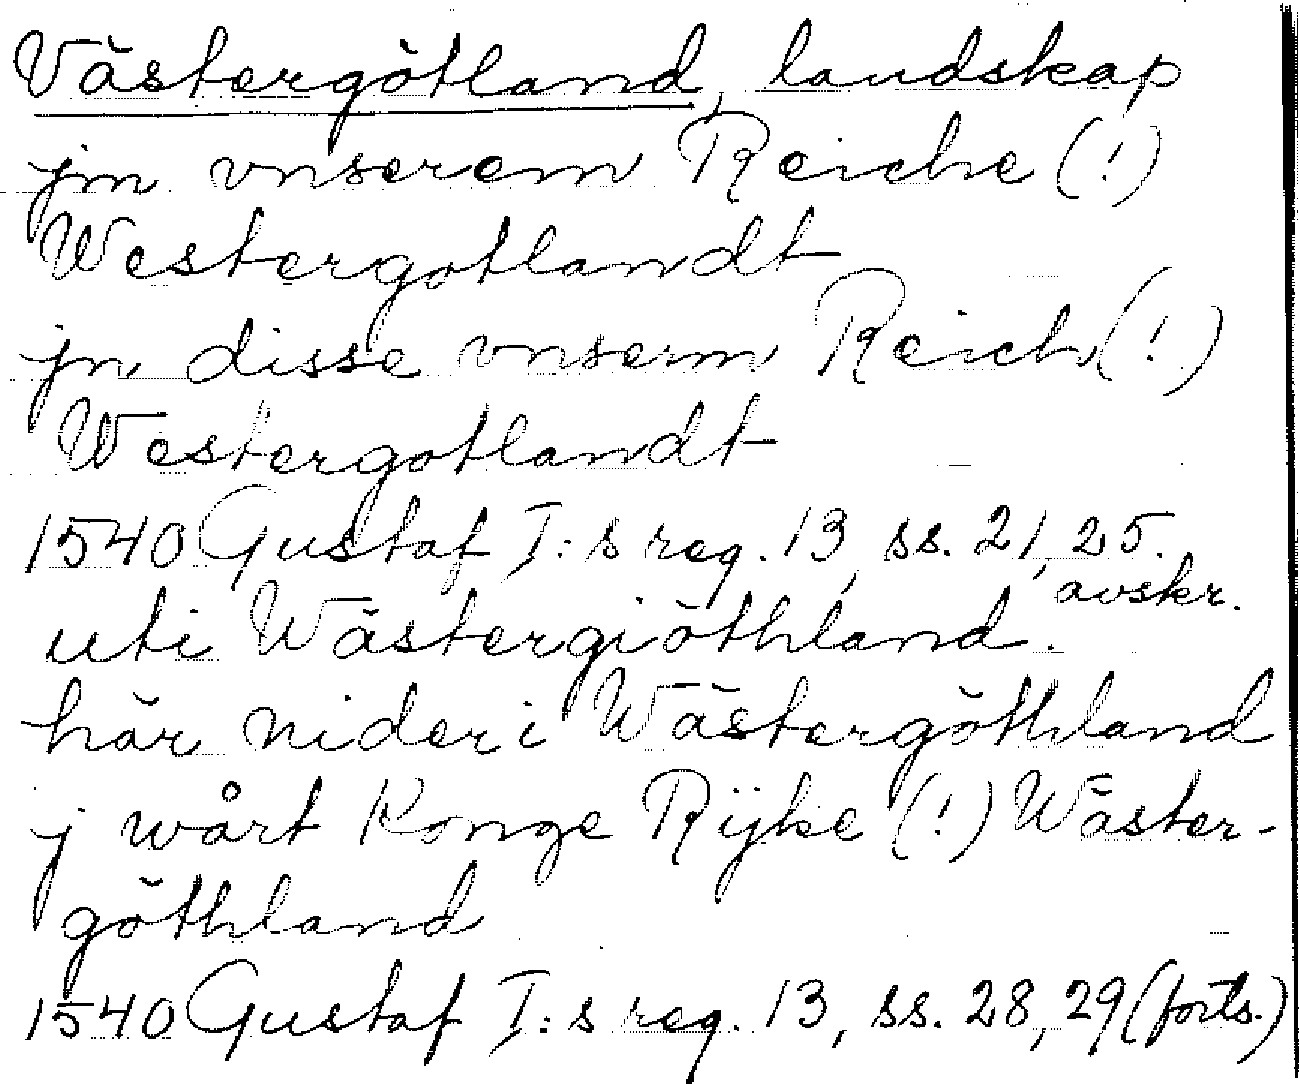 Västergötland, landskap
jm vnserem Reiche (!)
Westergotlandt
jn disse vnserm Reich (!)
Westergotlandt
1540 Gustaf I:s reg. 13, ss. 21, 25.
avskr.
uti Wästergiöthland.
här nider i Wästergöthland
j wårt Konge Rijke (!) Wäster-
göthland
1540 Gustaf I:s reg. 13, ss. 28, 29 (forts.)